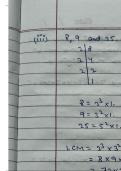 (iii) 8, 9 and 25
2 8
2 4
2 2
1
8 = 2³ × 1
9 = 3² × 1
25 = 5² × 1
LCM = 2³ × 3²
= 8 × 9 ×